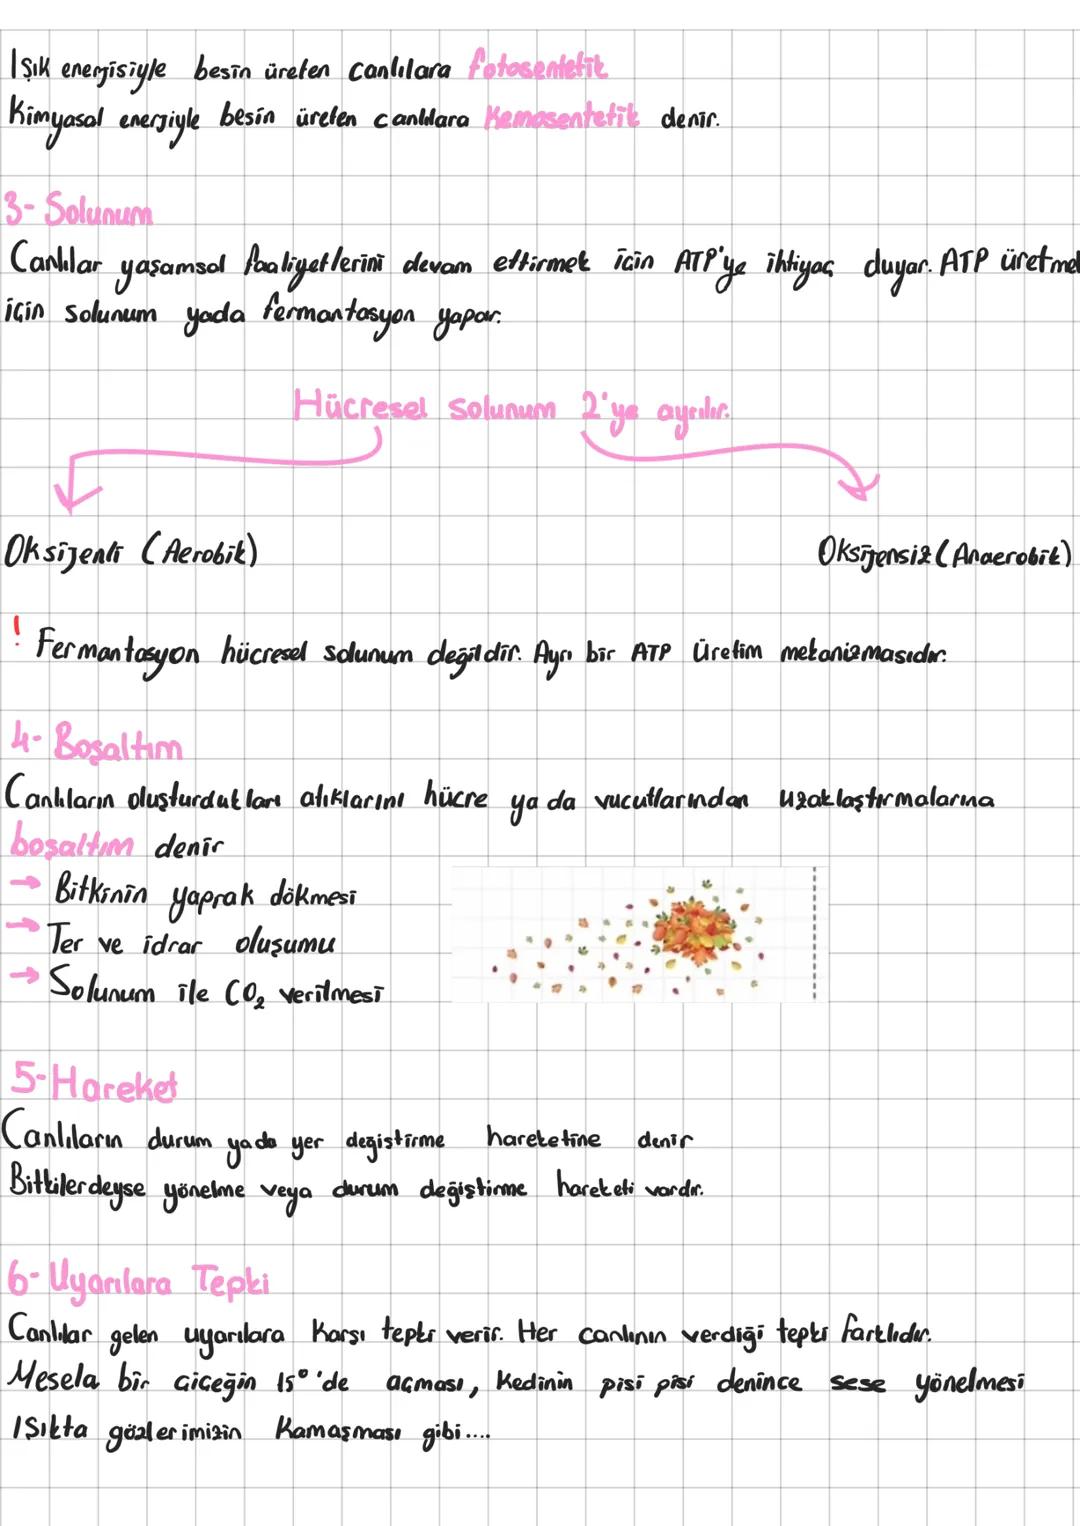 Işık enerjisiyle besin üreten canlılara fotosentetik
Kimyasal enerjiyle besin üreten canlılara Kemosentetik denir.
3- Solunum
Canlılar yaşamsal faaliyetlerini devam ettirmek için ATP'ye ihtiyaç duyar. ATP üretmek
için solunum yada fermantasyon yapar.
Hücresel solunum 2'ye ayrılır.
Oksijenli (Aerobik)
Oksijensiz (Anaerobik)
! Fermantasyon hücresel solunum değildir. Ayrı bir ATP üretim mekanizmasıdır.
4- Boşaltım
Canlıların oluşturdukları atıklarını hücre ya da vucutlarından uzaklaştırmalarına
boşaltım denir
→ Bitkinin yaprak dökmesi
→ Ter ve idrar oluşumu
→ Solunum ile CO₂ verilmesi
5- Hareket
Canlıların durum yada yer değiştirme hareketine denir
Bitkilerdeyse yönelme veya durum değiştirme hareketi vardır.
6- Uyarılara Tepki
Canlılar gelen uyarılara karşı tepki verir. Her canlının verdiği tepki farklıdır.
Mesela bir çiçeğin 15°'de açması, kedinin pisi pisi denince sese yönelmesi
Işıkta gözlerimizin kamaşması gibi....